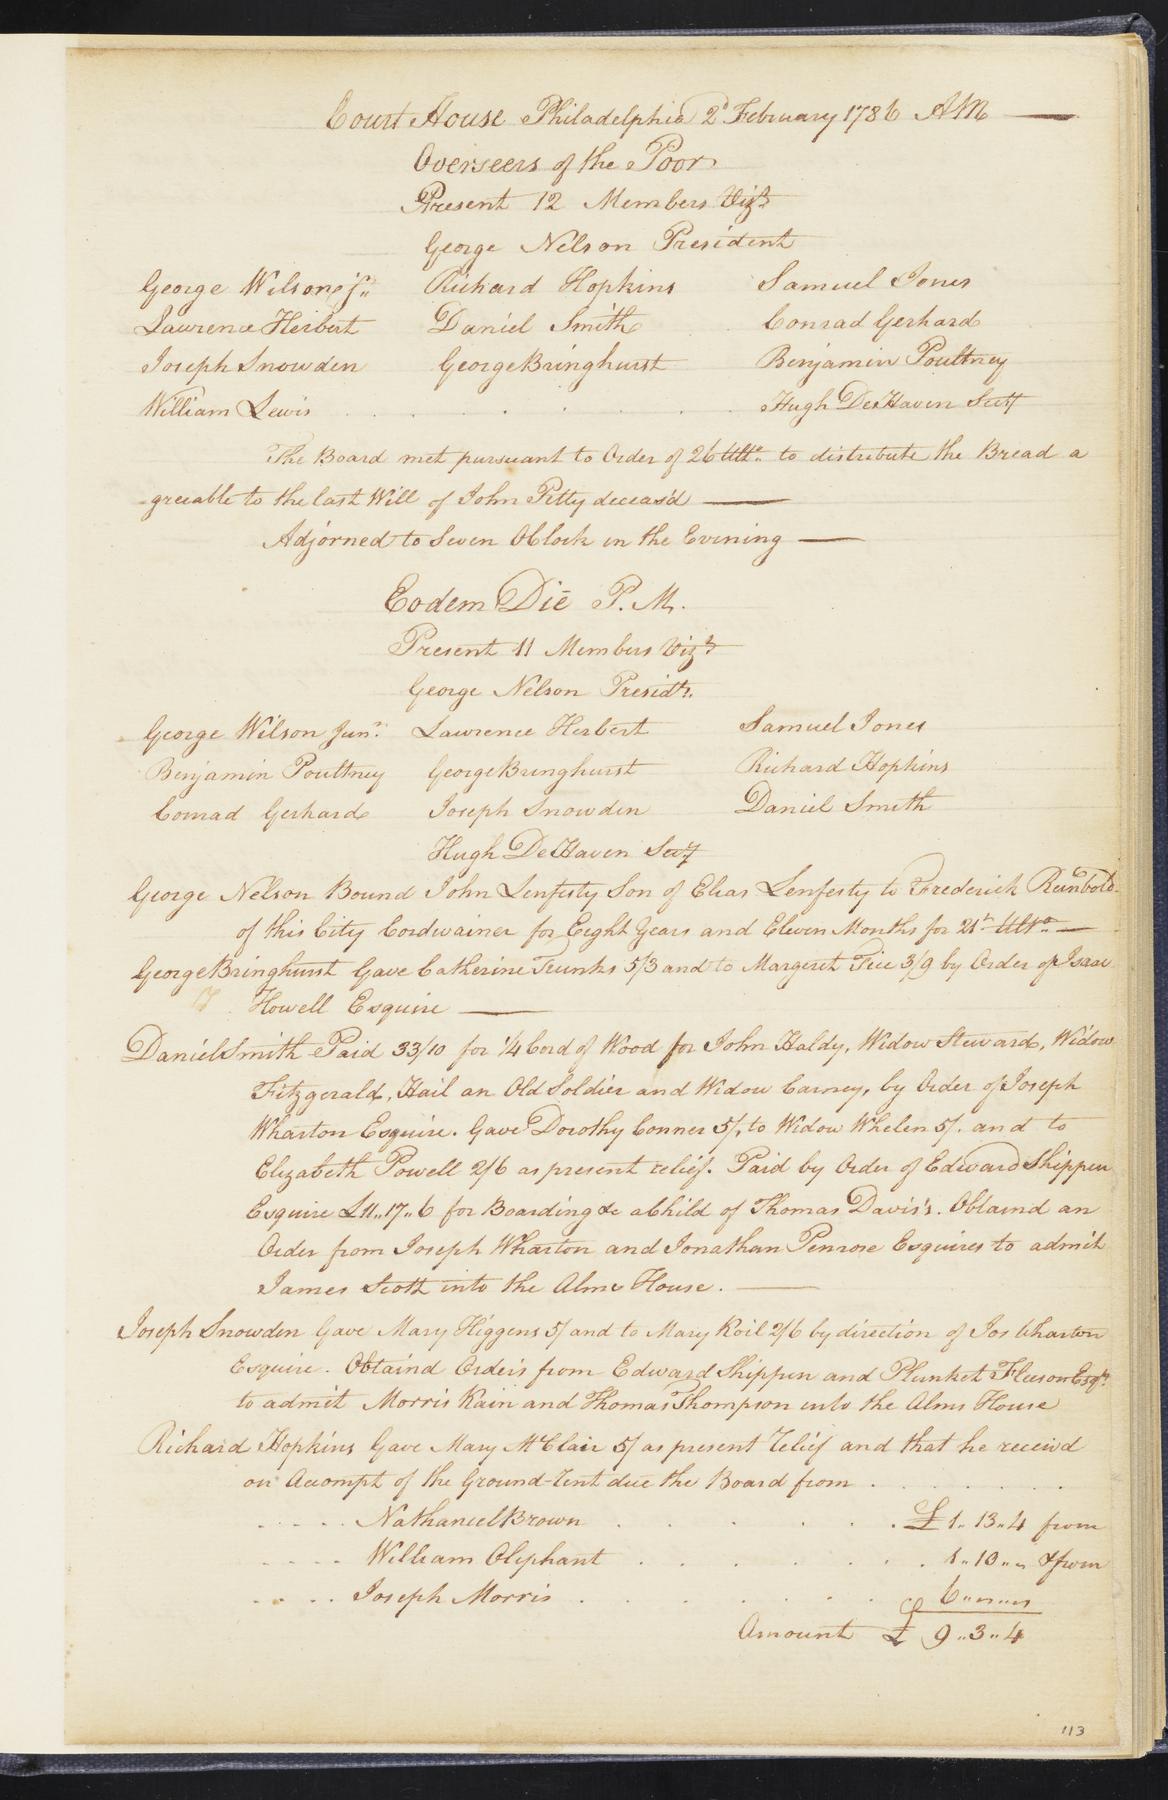 Court House Philadelphia 2d February 1786 AM
Overseers of the Poor
Present 12 Members Vizt
George Nelson President
George Wilson jr. Richard Hopkins Samuel Jones
Lawrence Herbert Daniel Smith Conrad Gerhard
Joseph Snowden George Bringhurst Benjamin Poultney
William Lewis . . . . . . . Hugh DeHaven Secy
The Board met pursuant to Order of 26 Ulto. to distribute the Bread a
greeable to the last Will of John Petty deceas'd —
Adjorned to Seven OClock in the Evening —
Eodem Die P. M.
Present 11 Members Vizt
George Nelson Presidt.
George Wilson Junr. Lawrence Herbert Samuel Jones
Benjamin Poultney George Bringhurst Richard Hopkins
Conrad Gerhard Joseph Snowden Daniel Smith
Hugh DeHaven Secy
George Nelson Bound John Lenfesty Son of Elias Lenfesty to Frederick Reinbold
of this City Cordwainer for Eight Years and Eleven Months for 21st Ulto. —
George Bringhurst Gave Catherine Trunks 5/3 and to Margeret Tice 3/9 by Order of Isaac
Howell Esquire —
Daniel Smith Paid 33/10 for 1/4 Cord of Wood for John Haldy, Widow Steward, Widow
Fitzgerald, Hail an Old Soldier and Widow Carney, by Order of Joseph
Wharton Esquire. Gave Dorothy Conner 5/, to Widow Whelen 5/. and to
Elizabeth Powell 2/6 as present relief. Paid by Order of Edward Shippen
Esquire £11..17..6 for Boarding &c a Child of Thomas Davis's. Obtaind an
Order from Joseph Wharton and Jonathan Penrose Esquires to admit
James Scott into the Alms House. —
Joseph Snowden Gave Mary Higgens 5/ and to Mary Koil 2/6 by direction of Jos Wharton
Esquire. Obtaind Orders from Edward Shippen and Plunket Fleeson Esqrs
to admit Morris Kain and Thomas Thompson into the Alms House
Richard Hopkins Gave Mary McClair 5/ as present relief and that he receivd
on Accompt of the Ground-Rent due the Board from . . . . . .
. . . . Nathaniel Brown . . . . . . £ 1..13..4 from
. . . . William Oliphant . . . . . . 1..10..„ & from
. . . . Joseph Morris . . . . . . 6..„..„
Amount £ 9..3..4
113